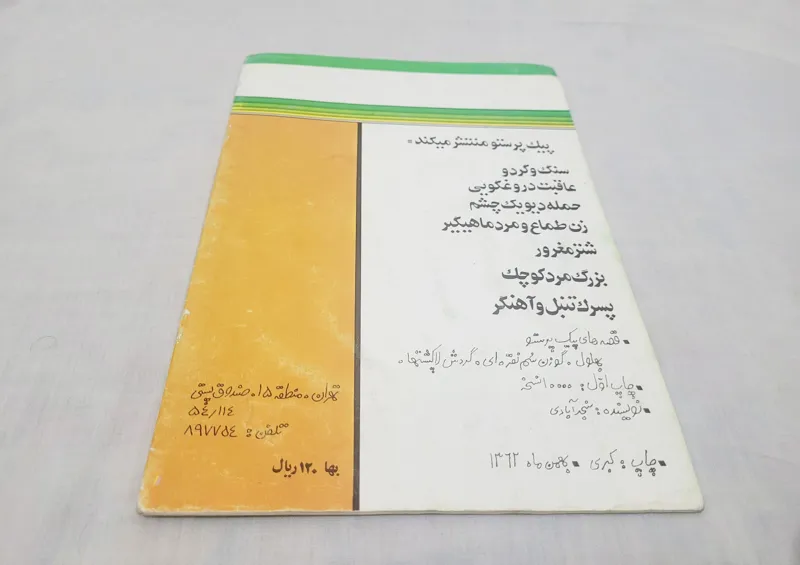 پیک پرستو منتشر میکند ▪
سنگ و گردو
عاقبت دروغگویی
حمله دیو یک چشم
زن طماع و مرد ماهیگیر
شنز مغرور
بزرگ مرد کوچک
پسرک تنبل و آهنگر
▪ قصه های پیک پرستو
بهلول ▪ گوزن سُم نقره ای ▪ گردش لاکپشتها ▪
▪ چاپ اوّل : ۱۰۰۰۰ نسخه
▪ نویسنده : نجدآبادی
▪ چاپ : کبری ▪ بهمن ماه ۱۳۶۲
تهران ▪ منطقه ۱۵ ▪ صندوق پستی
۵۴/۱۱۴
تلفن : ۸۹۷۷۵۴
بها ۱۲۰ ریال